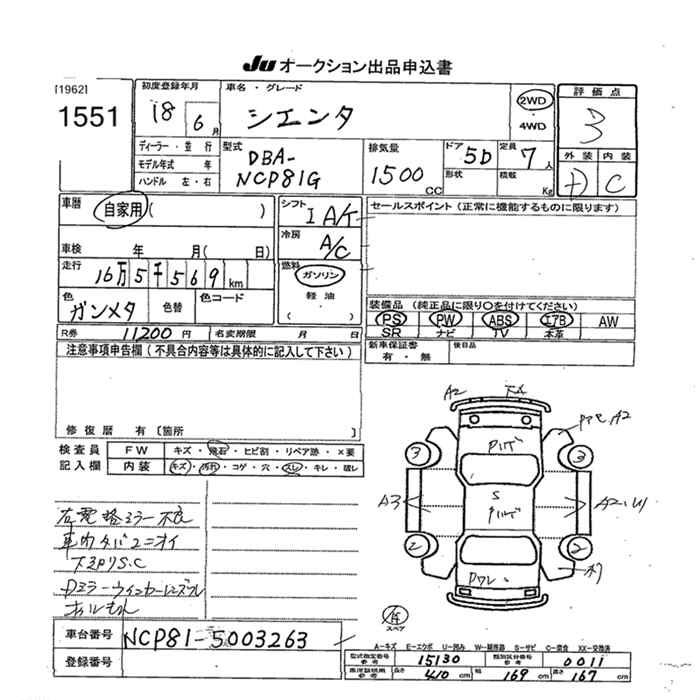 JU オークション出品申込書
[1962]
1551
初度登録年月
18 6月
車名・グレード
シエンタ
2WD
・
4WD
評価点
3
ディーラー・並行
モデル年式 年
ハンドル 左・右
型式
DBA-
NCP81G
排気量
1500 CC
ドア 5D
形状
定員 7人
積載 Kg
外装 内装
C
車歴
自家用( )
シフト
I A/T
セールスポイント (正常に機能するものに限ります)
車検 年 月( 日)
冷房
A/C
走行
16万5千569km
燃料
ガソリン
軽油
( )
色
ガンメタ
色替
色コード
装備品 (純正品に限り○を付けてください)
PS PW ABS エアB AW
SR ナビ TV 本革
R券 11200円
名変期限 月 日
新車保証書
有・無
後日品
注意事項申告欄(不具合内容等は具体的に記入して下さい)
修復歴 有〔箇所 〕
検査員
記入欄
FW キズ・飛石・ヒビ割・リペア跡・×要
内装 キズ・汚れ・コゲ・穴・スレ・キレ・破レ
右電格ミラー不良
車内タバコニオイ
下廻りS.C
A2
A2
3
3
A3
S
2
2
スペア
車台番号 NCP81-5003263
登録番号
A-キズ E-エクボ U-凹み W-補修跡 S-サビ C-腐食 XX-交換済
型式指定番号
参考
15130
類別区分番号
参考
0011
長さ 410cm
幅 169cm
高さ 167cm